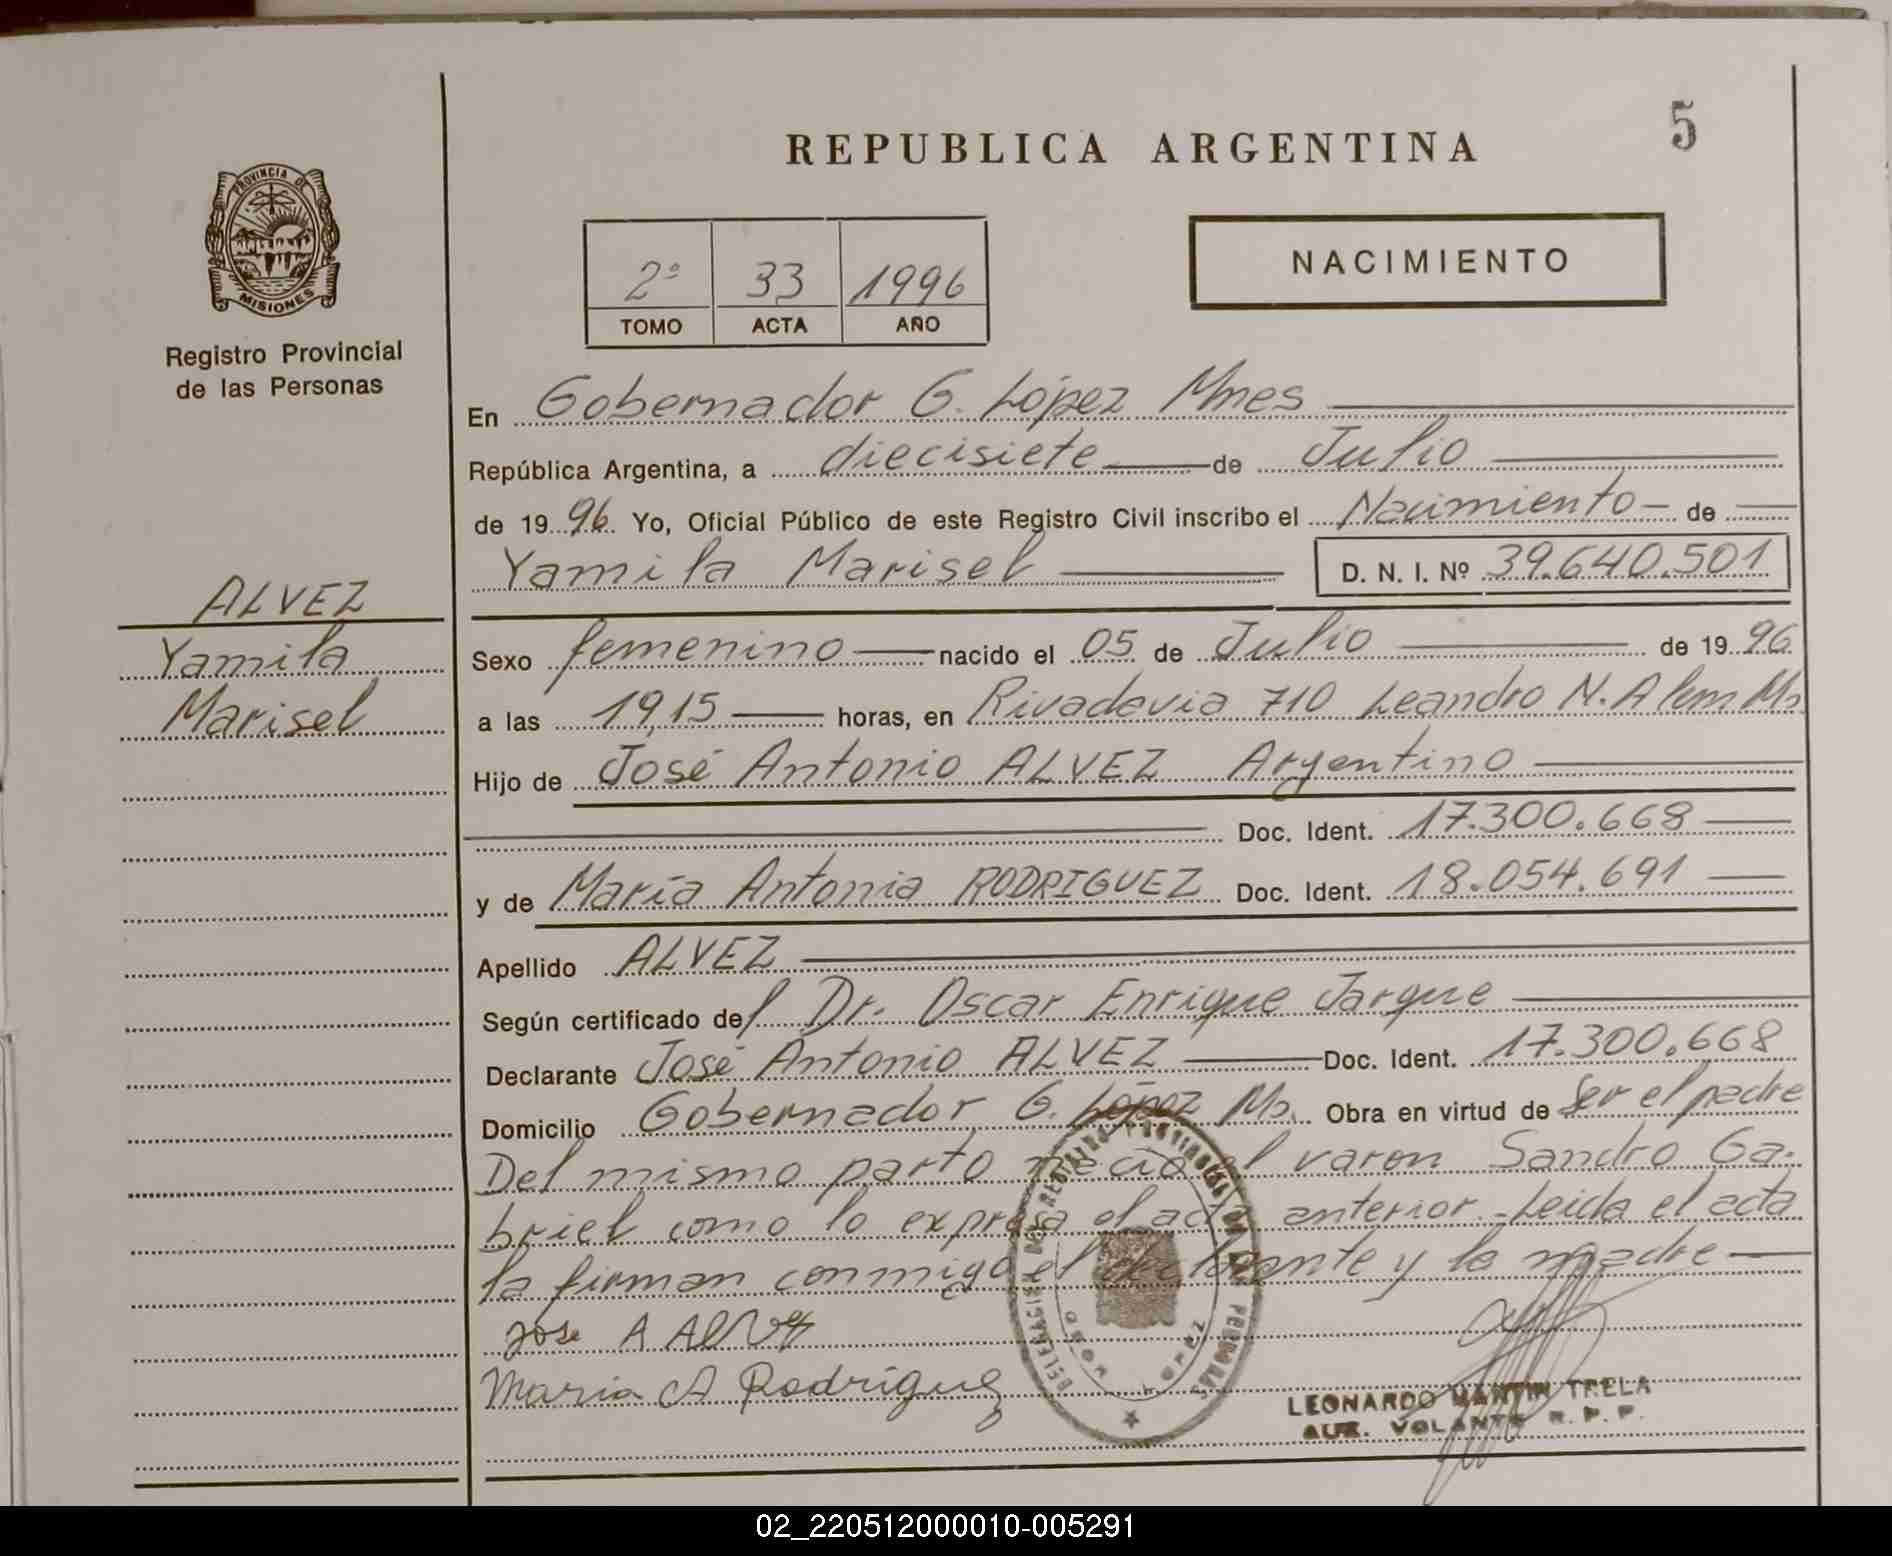 5
REPUBLICA ARGENTINA
PROVINCIA DE
MISIONES
Registro Provincial
de las Personas
2º 33 1996
TOMO ACTA AÑO
NACIMIENTO
En Gobernador G. López Mnes
República Argentina, a diecisiete de Julio
de 19 96 Yo, Oficial Público de este Registro Civil inscribo el Nacimiento de
Yamila Marisel D. N. I. Nº 39.640.501
ALVEZ
Yamila
Marisel
Sexo femenino nacido el 05 de Julio de 19 96
a las 19,15 horas, en Rivadavia 710 Leandro N. Alem Ms
Hijo de José Antonio ALVEZ Argentino
Doc. Ident. 17.300.668
y de María Antonia RODRIGUEZ Doc. Ident. 18.054.691
Apellido ALVEZ
Según certificado del Dr. Oscar Enrique Jarque
Declarante José Antonio ALVEZ Doc. Ident. 17.300.668
Domicilio Gobernador G. López Ms. Obra en virtud de Ser el padre
Del mismo parto nació el varon Sandro Ga-
briel como lo expresa el acta anterior.-Leida el acta
la firman conmigo el declarante y la madre
Jose A Alvez
Maria A Rodriguez
LEONARDO MARTIN TRELA
AUX. VOLANTE R. P. P.
02_220512000010-005291